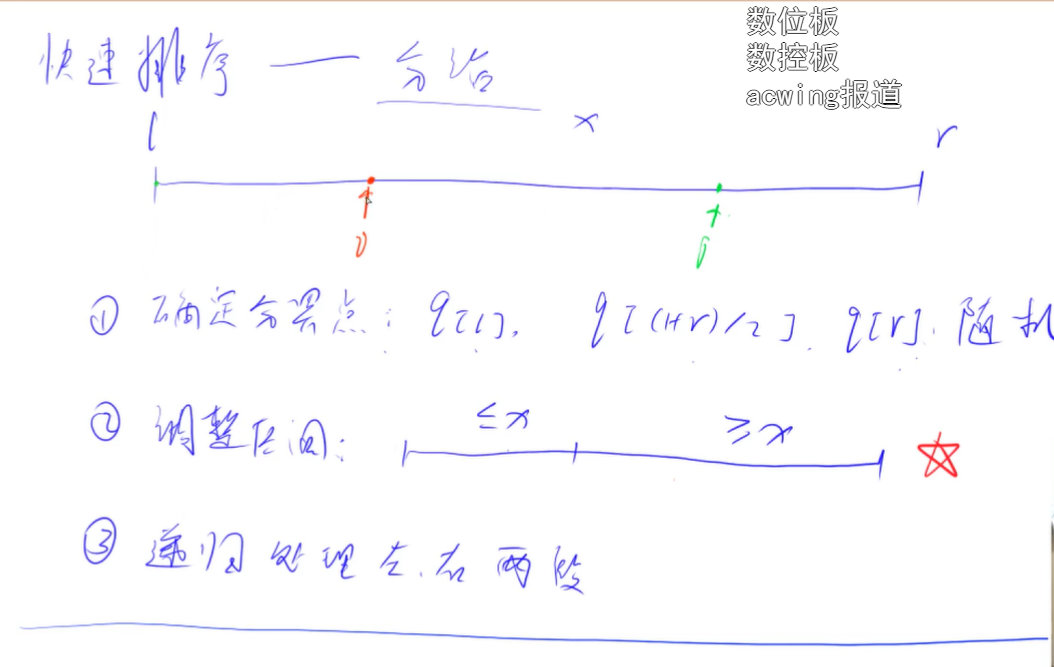 数位板
数控板
acwing报道
快速排序 —— 分治
l x r
① 确定分界点: q[l], q[(l+r)/2], q[r], 随机
② 调整区间: ≤x ≥x
③ 递归处理左、右两段